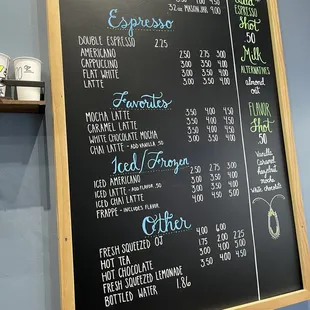 32 oz MASON JAR 4.00
Espresso
DOUBLE ESPRESSO 2.25
AMERICANO 2.50 2.75 3.00
CAPPUCCINO 3.00 3.50 4.00
FLAT WHITE 3.00 3.50 4.00
LATTE 3.00 3.50 4.00
Favorites
MOCHA LATTE 3.50 4.00 4.50
CARAMEL LATTE 3.50 4.00 4.50
WHITE CHOCOLATE MOCHA 3.50 4.00 4.50
CHAI LATTE - ADD VANILLA .50 3.50 4.00 4.50
Iced/Frozen
ICED AMERICANO 2.50 2.75 3.00
ICED LATTE - ADD FLAVOR .50 3.00 3.50 4.00
ICED CHAI LATTE 3.50 4.00
FRAPPE - INCLUDES FLAVOR 4.00 4.50 5.00
Other
FRESH SQUEEZED OJ 4.00 6.00
HOT TEA 1.75 2.00
HOT CHOCOLATE
FRESH SQUEEZED LEMONADE
BOTTLED WATER 1.86
ESPRESSO
Shot
.50
Milk
ALTERNATIVES
almond
oat
FLAVOR
Shot
.50
Vanilla
Caramel
hazelnut
mocha
White chocolate